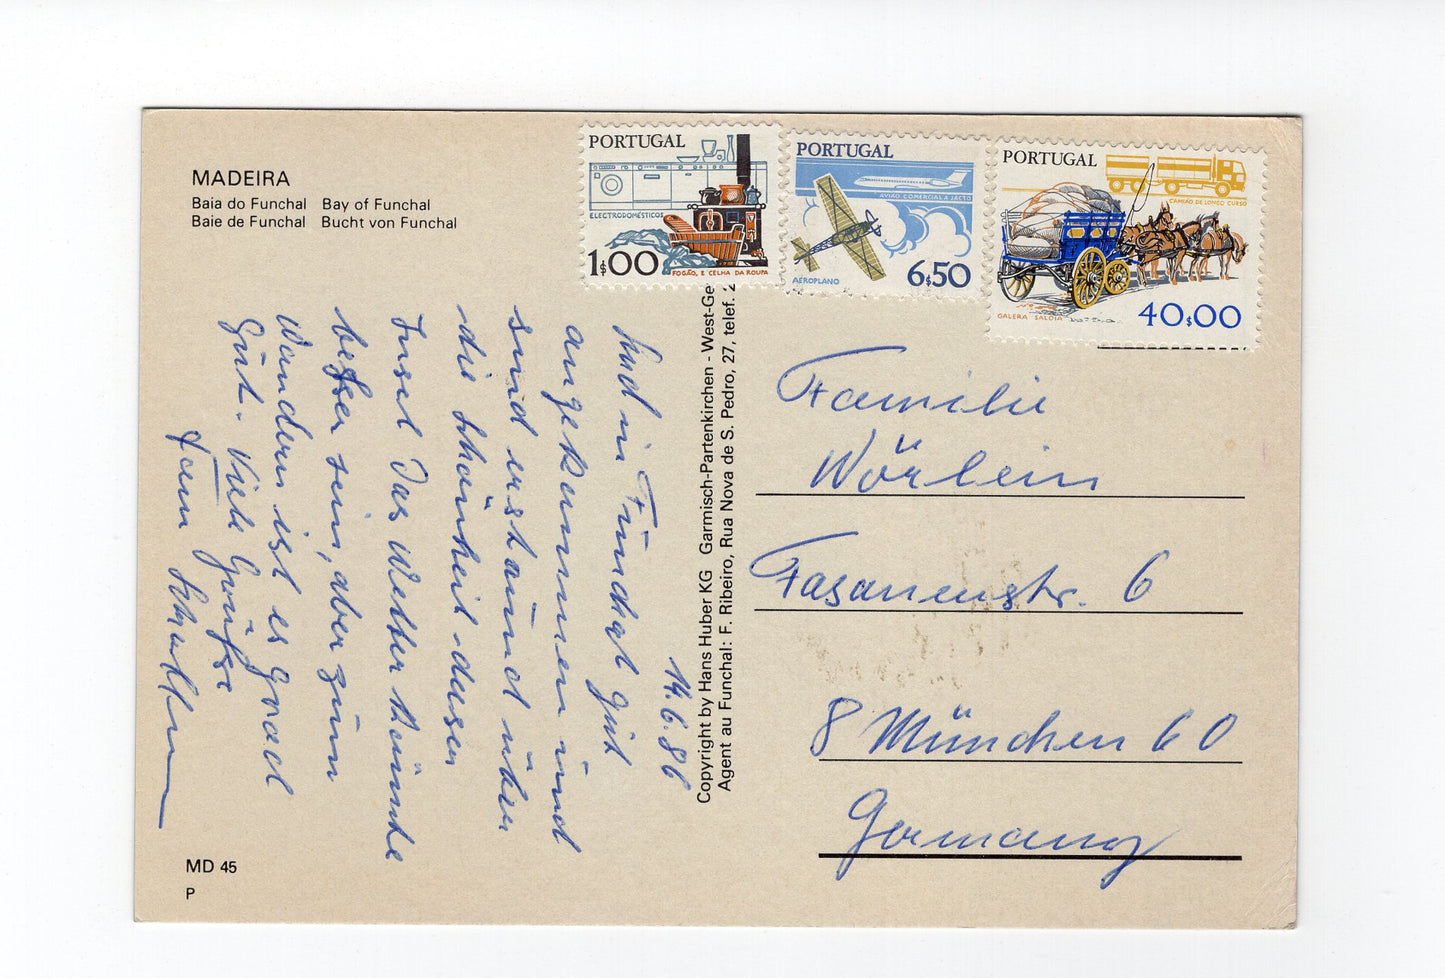 MADEIRA
Baia do Funchal Bay of Funchal
Baie de Funchal Bucht von Funchal
PORTUGAL
ELECTRODOMÉSTICOS
1$00
FOGÃO, E CELHA DA ROUPA
PORTUGAL
AVIÃO COMERCIAL A JACTO
AEROPLANO
6$50
PORTUGAL
CAMIÃO DE LONGO CURSO
GALERA SALOIA
40$00
14.6.86
Sind in Funchal gut
angekommen und
sind erstaunt über
die Schönheit dieser
Insel Das Wetter könnte
besser sein, aber zum
Wandern ist es grad
Gut. Viele Grüße
Fam
Copyright by Hans Huber KG Garmisch-Partenkirchen - West-Ge
Agent au Funchal: F. Ribeiro, Rua Nova de S. Pedro, 27, telef. 2
Familie
Wörlein
Fasanenstr. 6
8 München 60
Germany
MD 45
P